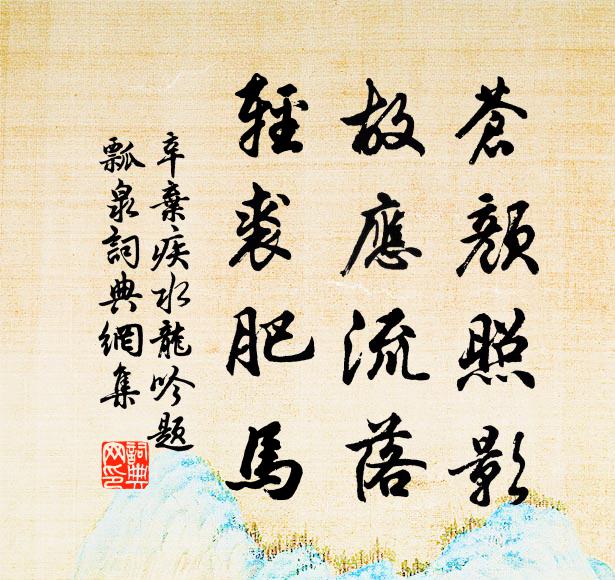 蒼顏照影
故應流落
輕裘肥馬
辛棄疾水龍吟題
瓢泉詞典網集
詞典
网印